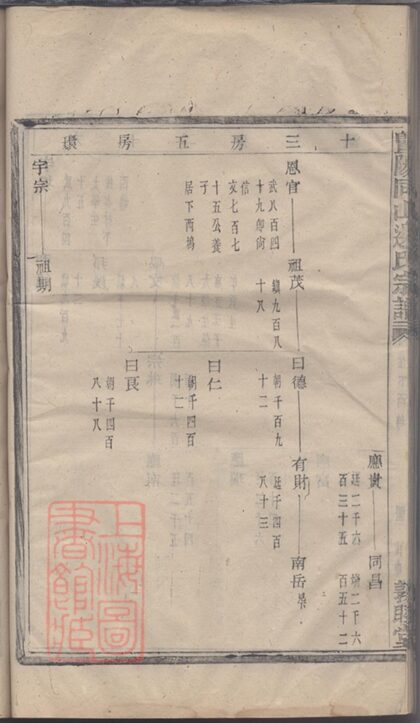 暨陽同山邊氏宗譜
敦睦堂
十三房五房環
應貴
廷二千六
百三十五
同昌
燒二千六
百五十二
恩官
武八百四
十九邺向
信
友七百七
十五公養
子
居下西塢
祖茂
鎮九百八
十八
曰德
朝千百九
十二
有財
廷千四百
八十三
南岳
曰仁
朝千四百
十二
曰良
朝千四百
八十八
字宗
祖期
上海圖
書館